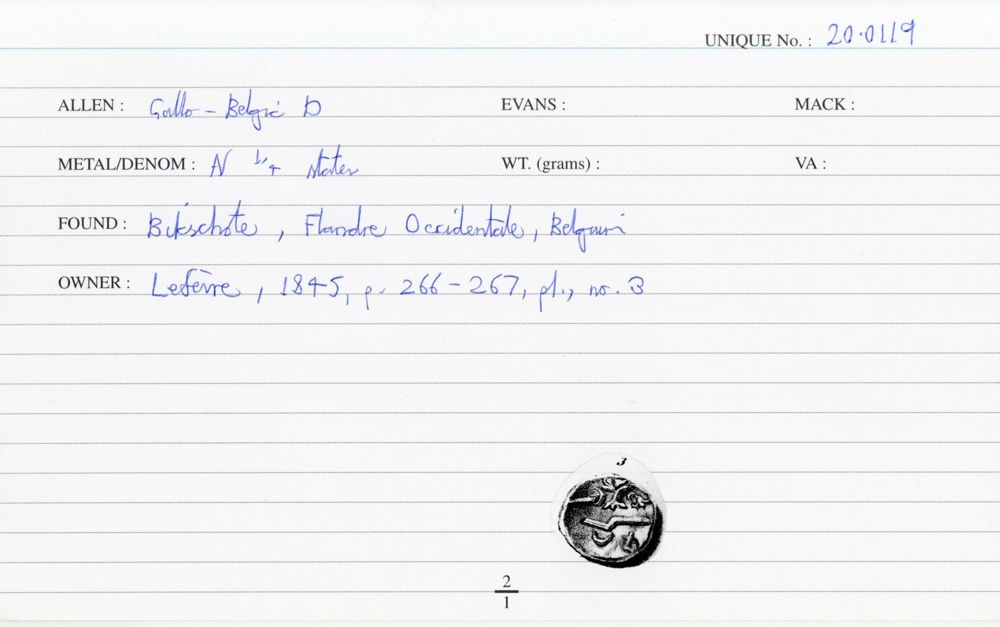 UNIQUE No. : 20.0119
ALLEN : Gallo-Belgic D EVANS : MACK :
METAL/DENOM : N 1/4 stater WT. (grams) : VA :
FOUND : Bikschote, Flandre Occidentale, Belgium
OWNER : Lefèvre, 1845, p. 266-267, pl., no. 3
3
2
1